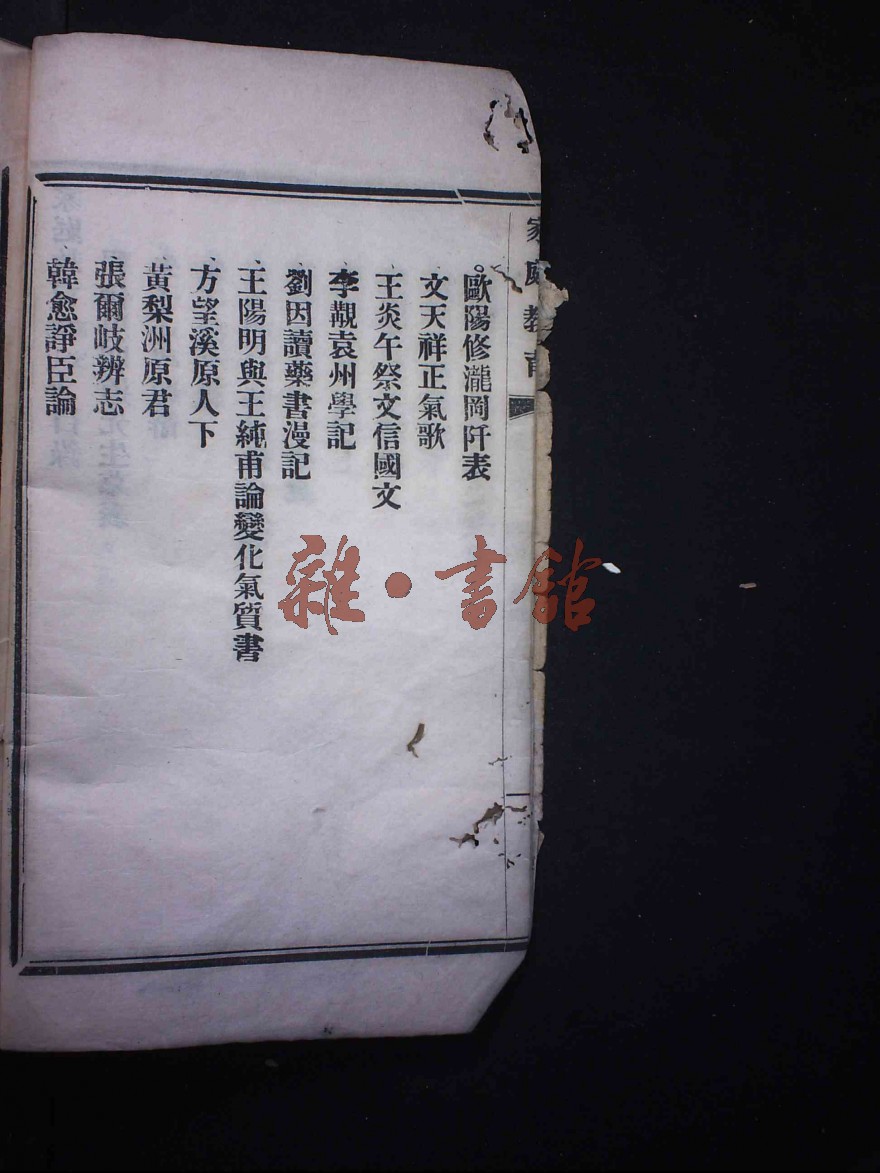 家庭教育
歐陽修瀧岡阡表
文天祥正氣歌
王炎午祭文信國文
李覯袁州學記
劉因讀藥書漫記
王陽明與王純甫論變化氣質書
方望溪原人下
黃梨洲原君
張爾岐辨志
韓愈諍臣論
雜·書館